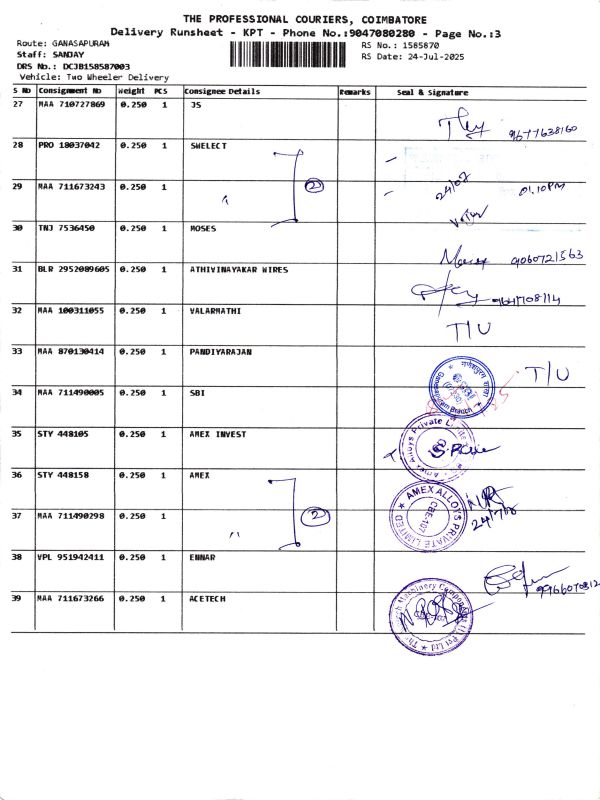 THE PROFESSIONAL COURIERS, COIMBATORE
Delivery Runsheet - KPT - Phone No.:9047080280 - Page No.:3
Route: GANASAPURAM
RS No.: 1585870
Staff: SANJAY
RS Date: 24-Jul-2025
DRS No.: DCJB158587003
Vehicle: Two Wheeler Delivery
S No Consignment No Weight PCS Consignee Details Remarks Seal & Signature
27 MAA 710727869 0.250 1 JS
9677638160
28 PRO 18037042 0.250 1 SWELECT
29 MAA 711673243 0.250 1 〃 2 24/07 01.10PM
30 TNJ 7536450 0.250 1 MOSES
9060721563
31 BLR 2952089605 0.250 1 ATHIVINAYAKAR WIRES
32 MAA 100311055 0.250 1 VALARMATHI
T/U
33 MAA 870130414 0.250 1 PANDIYARAJAN
T/U
34 MAA 711490005 0.250 1 SBI
Branch
35 STY 448105 0.250 1 AMEX INVEST
Amex Alloys Private
36 STY 448158 0.250 1 AMEX
AMEX ALLOYS PRIVATE LIMITED
CBE-107
37 MAA 711490298 0.250 1 〃 2
38 VPL 951942411 0.250 1 ENNAR
39 MAA 711673266 0.250 1 ACETECH
Machinery Components
Pvt Ltd